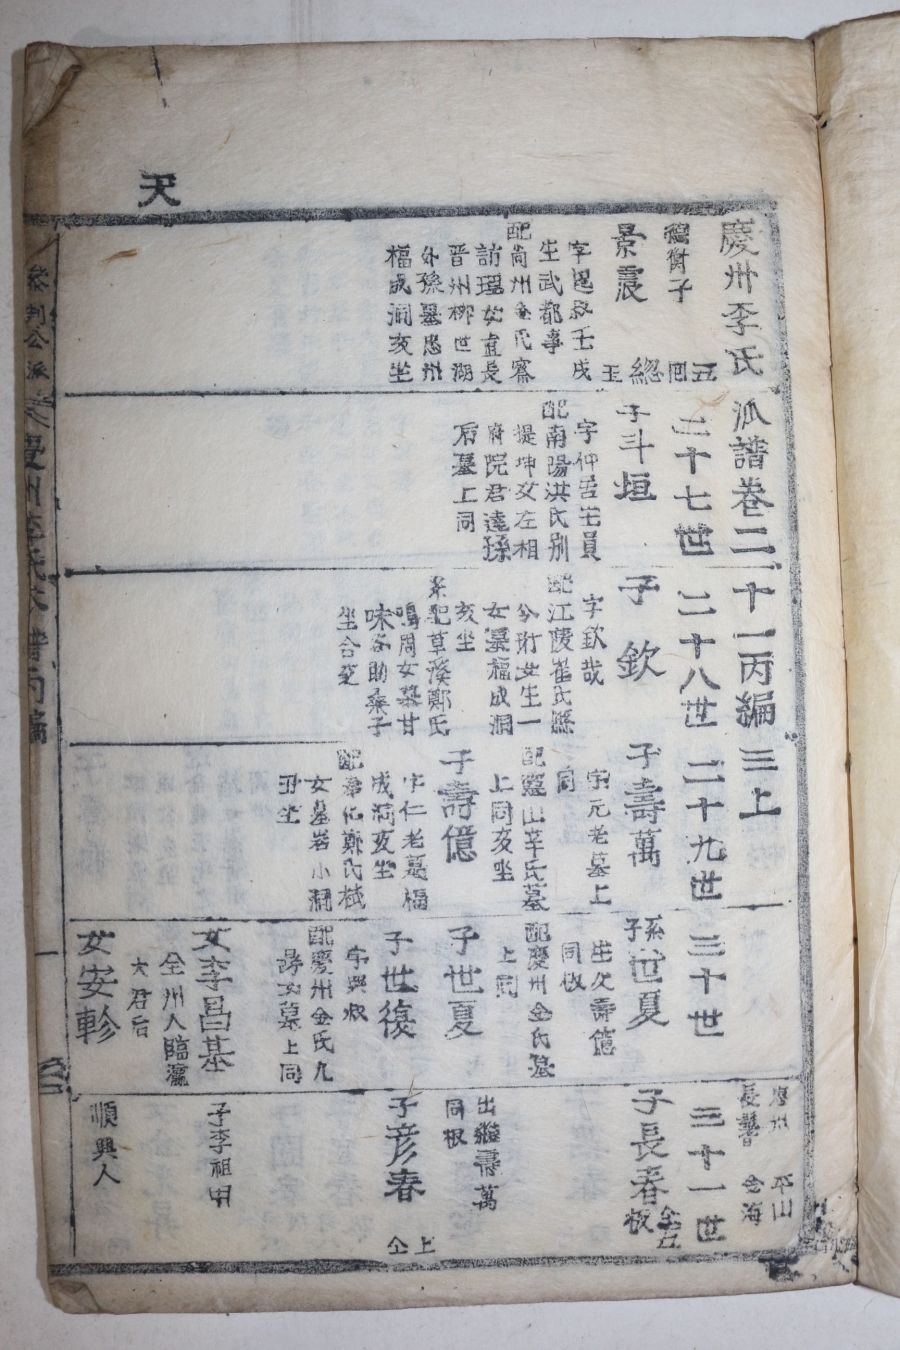 天
慶州李氏瓜譜卷二十一丙編三上
唐州 平山
長鬐 金海
子
五
景震
總
字
壬戌
生武都事
配尙州金氏
女直長
晋州柳世湖
外孫墓忠州
福成洞亥坐
二十七世
子斗垣
字仲
生員
配南陽洪氏別
提坤女左相
府院君達孫
后墓上同
二十八世
子欽
字欽哉
配江陵崔氏縣
女生一
女墓福成洞
亥坐
系配草溪鄭氏
鳴周女墓甘
味谷助桑子
坐合窆
二十九世
子壽萬
字元老墓上
同
配靈山辛氏墓
上同亥坐
子壽億
字仁老墓福
成洞亥坐
鄭氏
女墓
小洞
丑坐
三十世
系子世夏
生父壽億
同板
配慶州金氏墓
上同
子世夏
子世復
字興叔
配慶州金氏九
女墓上同
女李昌基
全州人臨瀛
大君后
女安軫
三十一世
子長春
板
出繼壽萬
同板
子彦春
上
子李祖
順興人
慶州李氏
譜丙編
一